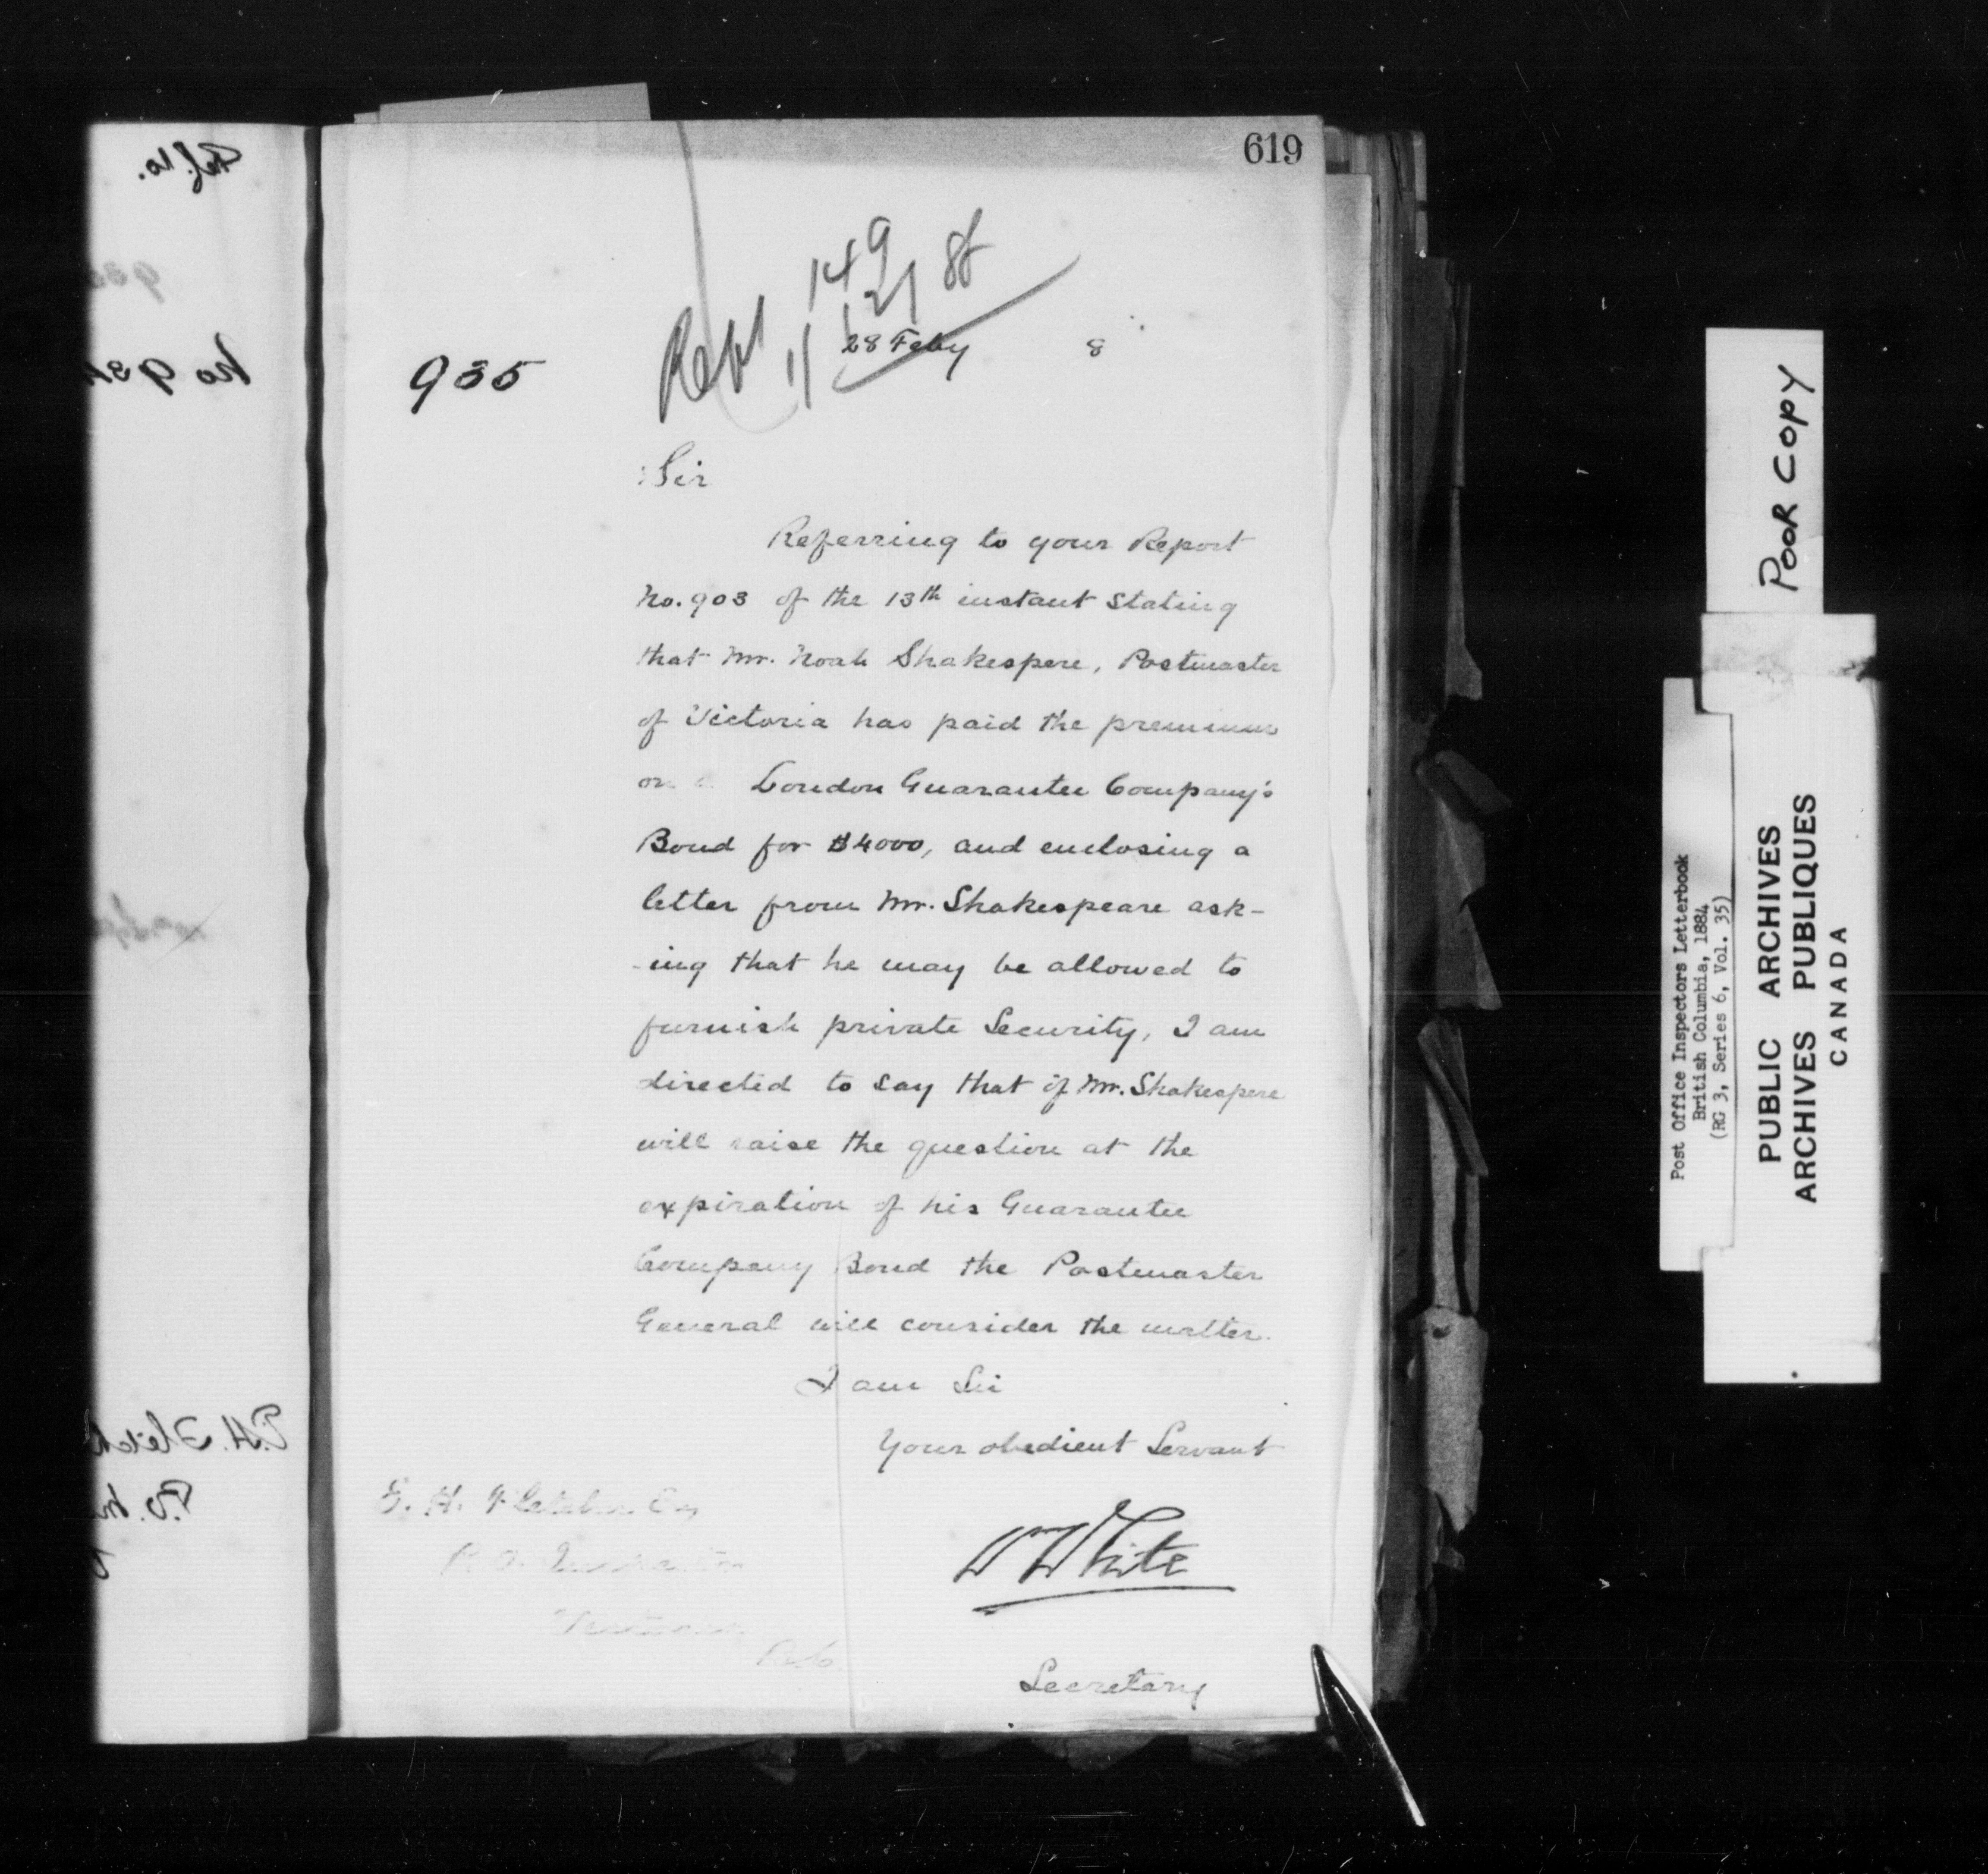 619
149
21 88
11
28 Feby 8
935
Sir
Referring to your Report
No. 903 of the 13th instant stating
that Mr. Noah Shakespere, Postmaster
of Victoria has paid the premium
on a London Guarantee Company's
Bond for $4000, and enclosing a
letter from Mr. Shakespeare ask-
-ing that he may be allowed to
furnish private Security, I am
directed to say that if Mr. Shakespere
will raise the question at the
expiration of his Guarantee
Company Bond the Postmaster
General will consider the matter.
I am Sir
Your obedient Servant
W White
Secretary
E. H. Fletcher Esq
P. O. Inspector
Victoria
B.C.
POOR COPY
Post Office Inspectors Letterbook
British Columbia, 1884
(RG 3, Series 6, Vol. 35)
PUBLIC ARCHIVES
ARCHIVES PUBLIQUES
CANADA